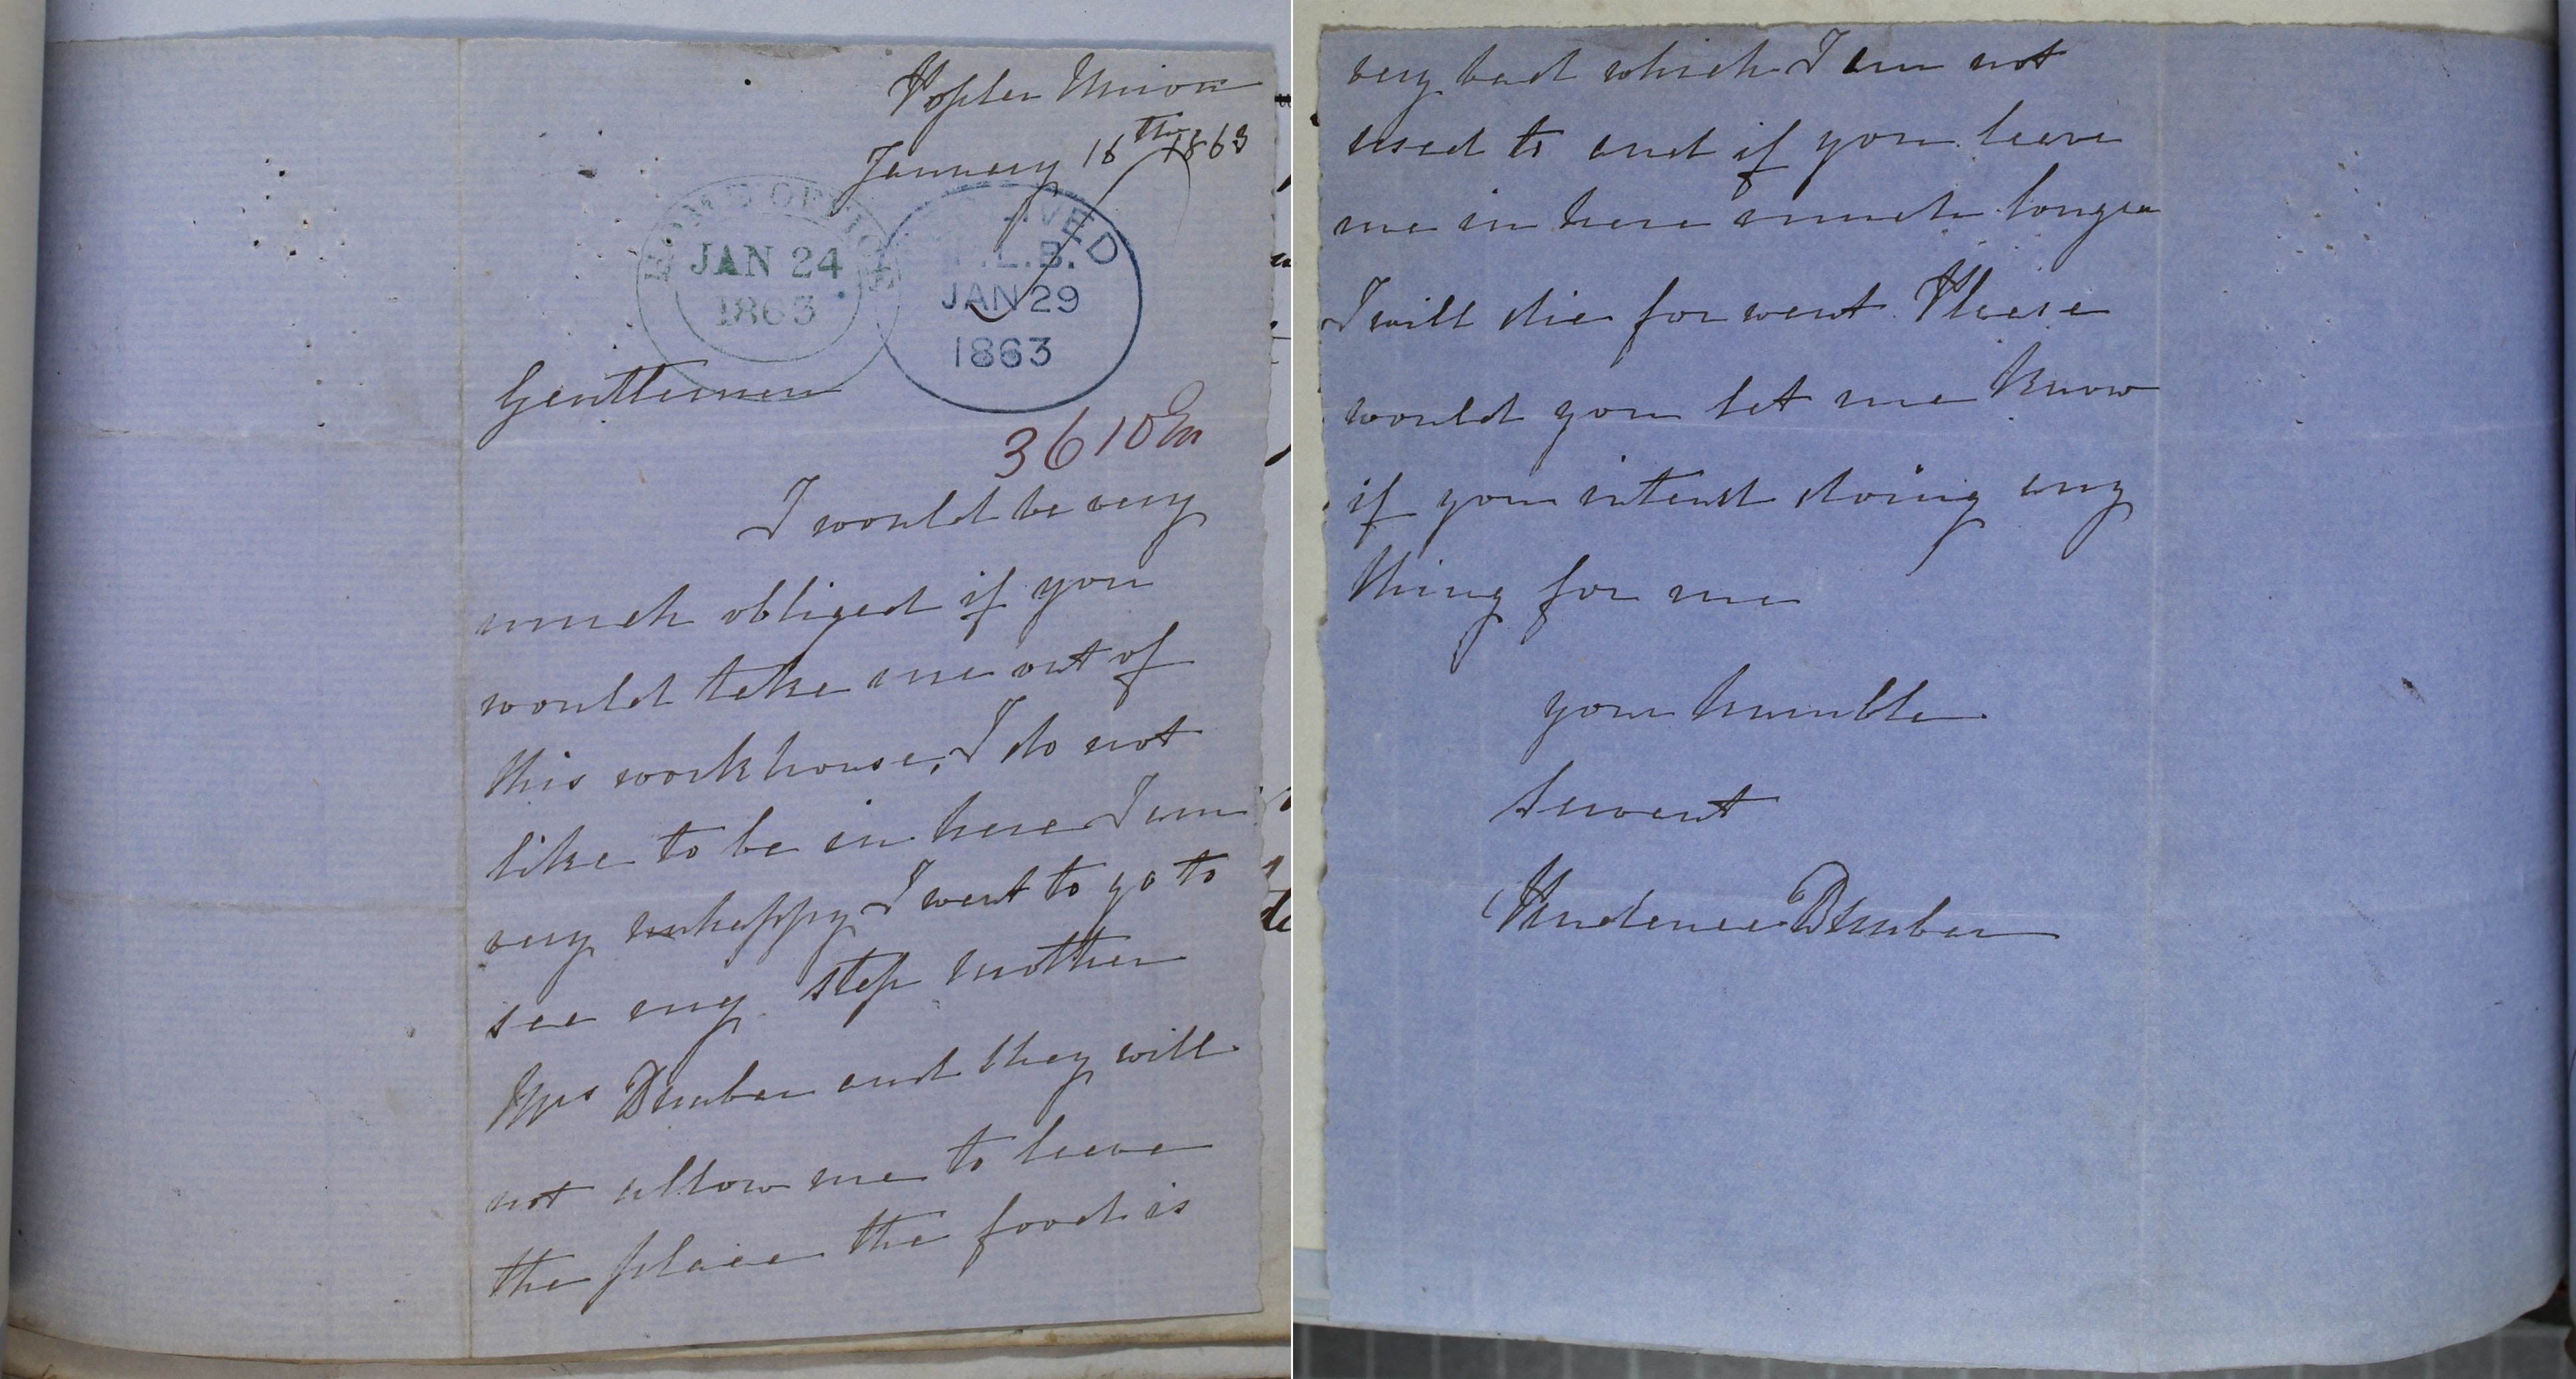 Poplar Union
January 16th 1863
HOME OFFICE
JAN 24
1863
RECEIVED
P.L.B.
JAN 29
1863
Gentlemen
3610
I would be very
much obliged if you
would take me out of
this workhouse, I do not
like to be in here I am
very unhappy I want to go to
see my step mother
Mrs Dunbar and they will
not allow me to leave
the place the food is
very bad which I am not
used to and if you leave
me in here much longer
I will die for want Please
would you let me know
if you intend doing any
thing for me
your humble
Servant
Prudence Dunbar